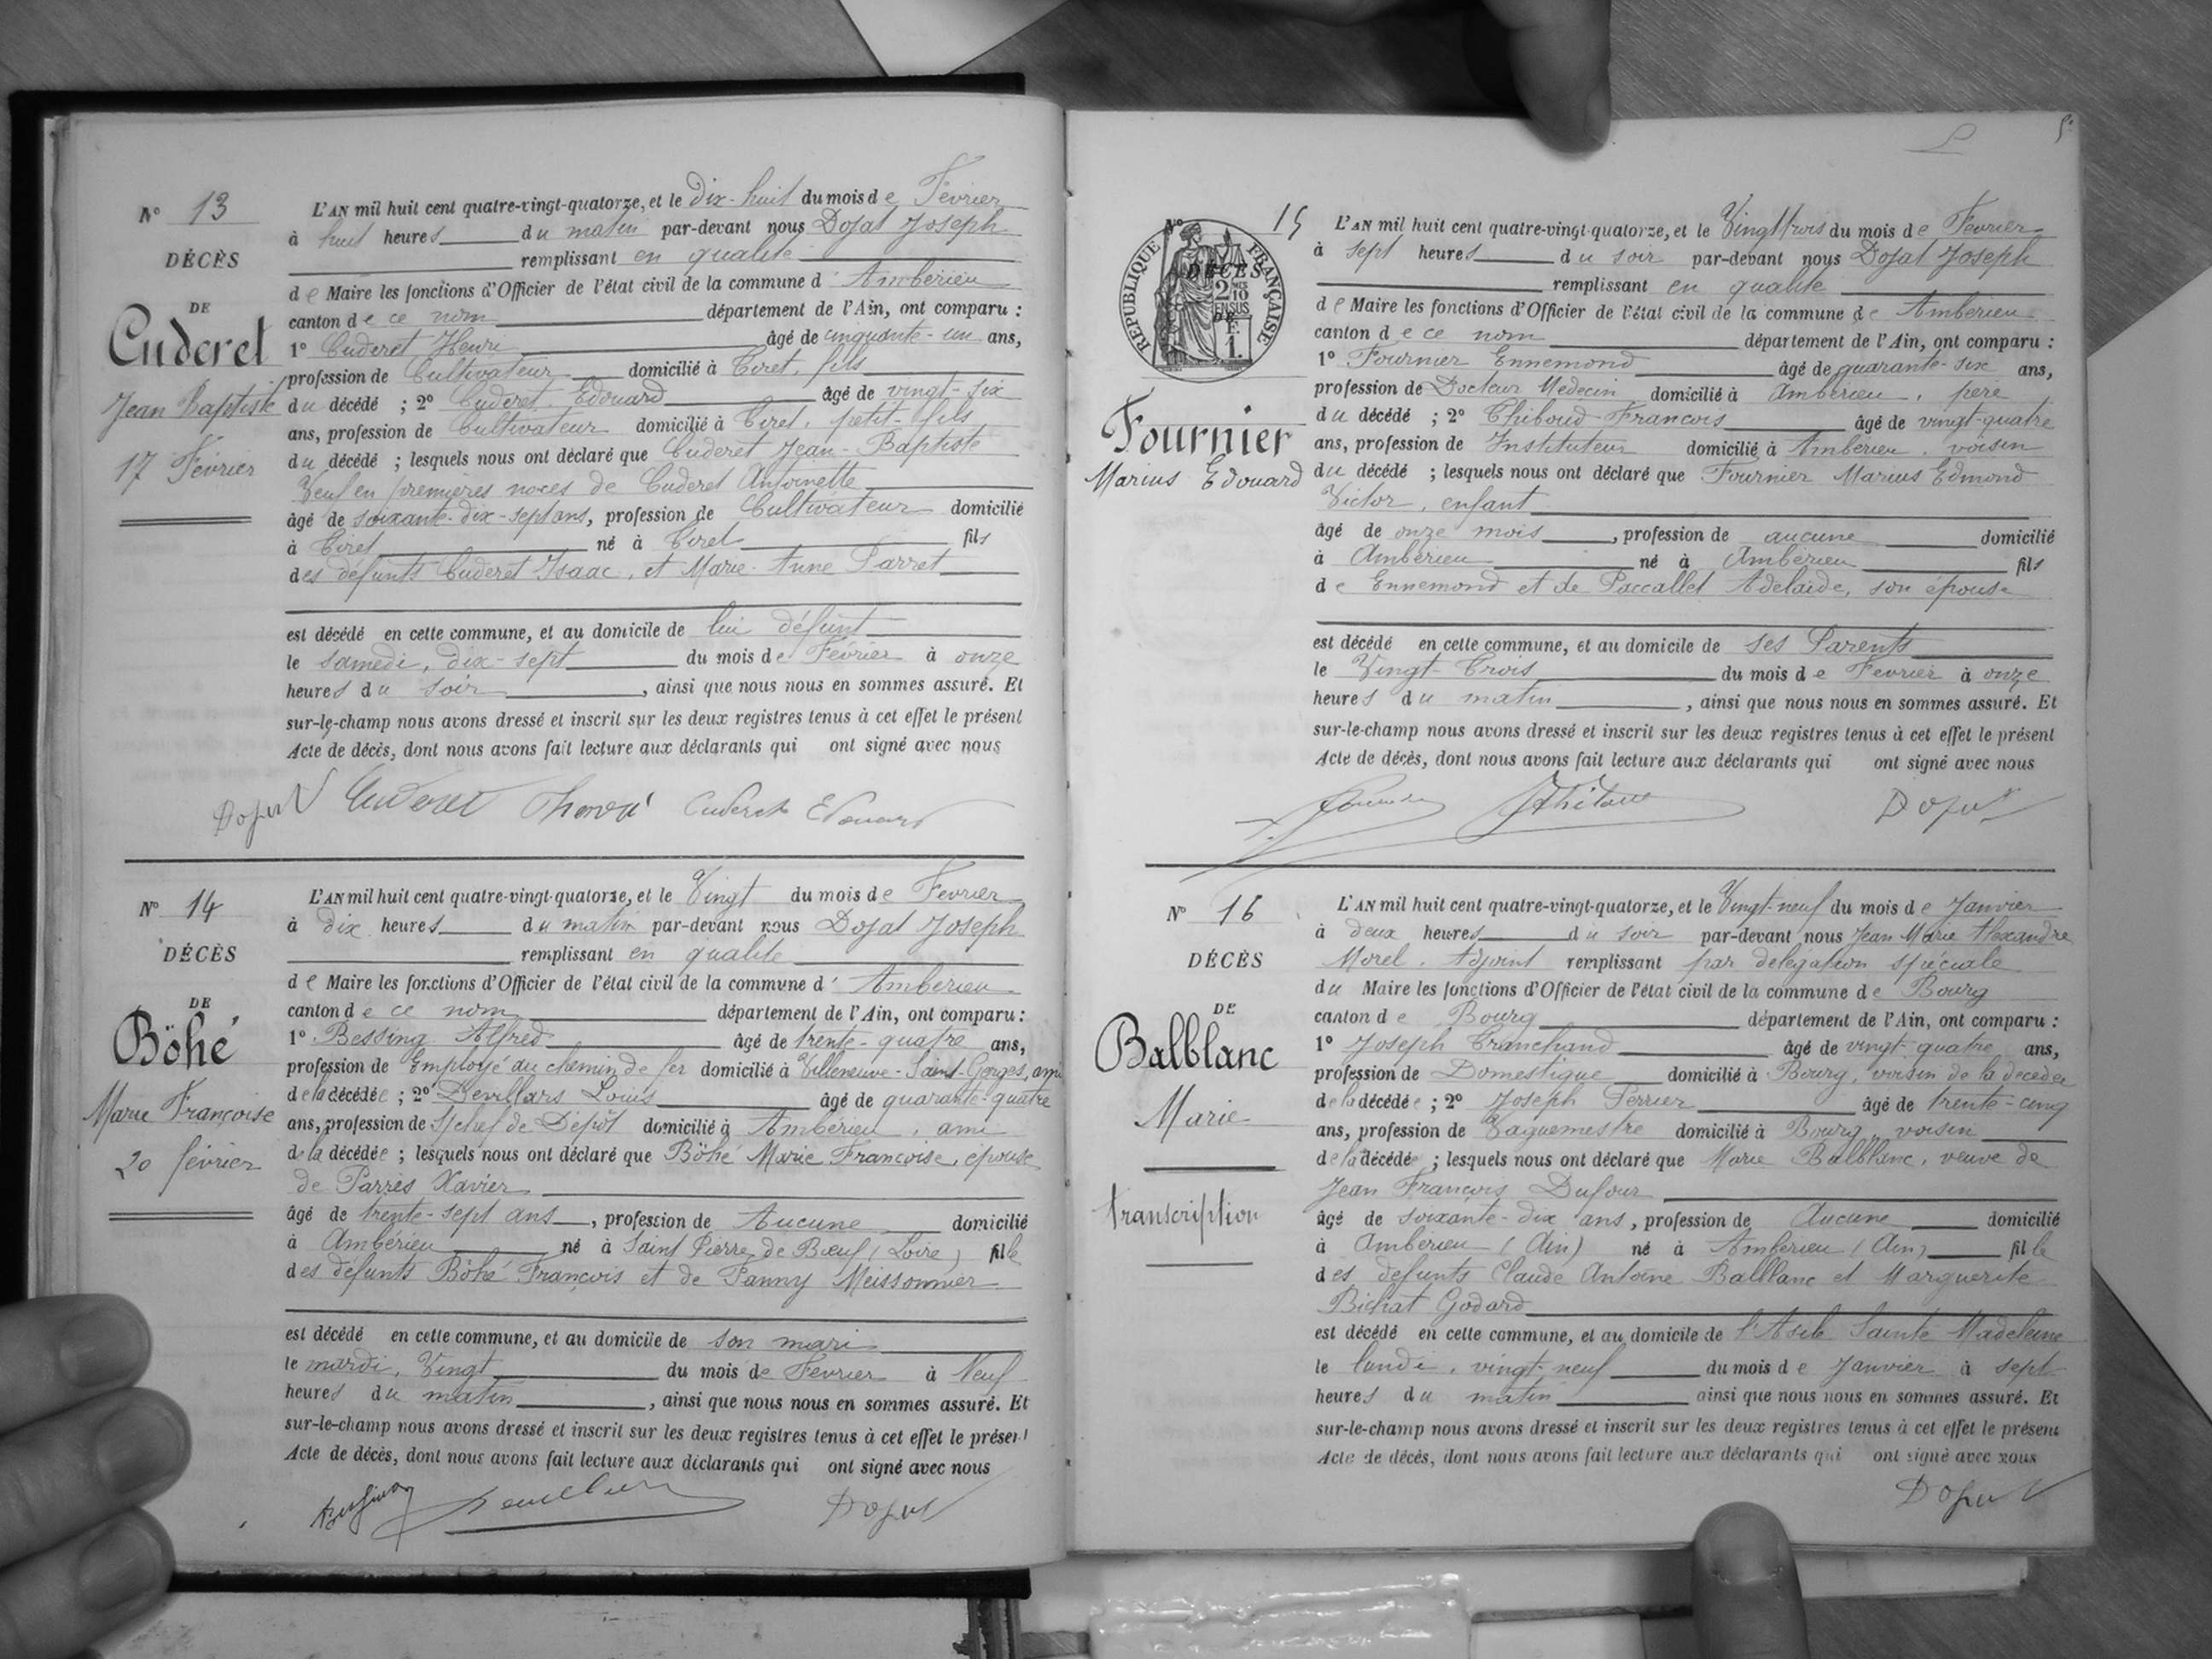 N° 13
DÉCÈS
DE
Cuderet
Jean Baptiste
17 Février
L'AN mil huit cent quatre-vingt-quatorze, et le Dix-huit du mois de Février
à huit heures du matin par-devant nous Dojat Joseph
remplissant en qualité
de Maire les fonctions d'Officier de l'état civil de la commune d'Ambérieu
canton de ce nom département de l'Ain, ont comparu :
1° Cuderet Henri âgé de cinquante-un ans,
profession de Cultivateur domicilié à Tiret, fils
du décédé ; 2° Cuderet Edouard âgé de vingt-six
ans, profession de Cultivateur domicilié à Tiret, petit-fils
du décédé ; lesquels nous ont déclaré que Cuderet Jean-Baptiste
Veuf en premières noces de Cuderet Antoinette
âgé de soixante-dix-sept ans, profession de Cultivateur domicilié
à Tiret né à Tiret fils
des défunts Cuderet Isaac, et Marie-Anne Parret
est décédé en cette commune, et au domicile de lui défunt
le samedi, dix-sept du mois de Février à onze
heures du soir, ainsi que nous nous en sommes assuré. Et
sur-le-champ nous avons dressé et inscrit sur les deux registres tenus à cet effet le présent
Acte de décès, dont nous avons fait lecture aux déclarants qui ont signé avec nous
Dojat Cuderet Cuderet Edouard
N° 14
DÉCÈS
DE
Böhé
Marie Françoise
20 février
L'AN mil huit cent quatre-vingt-quatorze, et le Vingt du mois de Février
à dix heures du matin par-devant nous Dojat Joseph
remplissant en qualité
de Maire les fonctions d'Officier de l'état civil de la commune d'Ambérieu
canton de ce nom département de l'Ain, ont comparu :
1° Bessing Alfred âgé de trente-quatre ans,
profession de Employé au chemin de fer domicilié à Villeneuve-Saint-Georges, ami
de la décédée ; 2° Devillars Louis âgé de quarante-quatre
ans, profession de S/chef de Dépôt domicilié à Ambérieu, ami
de la décédée ; lesquels nous ont déclaré que Böhé Marie Françoise, épouse
de Parrès Xavier
âgé de trente-sept ans, profession de Aucune domicilié
à Ambérieu né à Saint Pierre de Bœuf (Loire) fille
des défunts Böhé François et de Fanny Meissonnier
est décédé en cette commune, et au domicile de son mari
le mardi, Vingt du mois de Février à Neuf
heures du matin, ainsi que nous nous en sommes assuré. Et
sur-le-champ nous avons dressé et inscrit sur les deux registres tenus à cet effet le présent
Acte de décès, dont nous avons fait lecture aux déclarants qui ont signé avec nous
Dojat
5
N° 15
RÉPUBLIQUE FRANÇAISE
DÉCÈS
2/10 EN SUS
DE
1 F.
Fournier
Marius Edouard
L'AN mil huit cent quatre-vingt-quatorze, et le Vingt trois du mois de Février
à sept heures du soir par-devant nous Dojat Joseph
remplissant en qualité
de Maire les fonctions d'Officier de l'état civil de la commune de Ambérieu
canton de ce nom département de l'Ain, ont comparu :
1° Fournier Ennemond âgé de quarante-six ans,
profession de Docteur Médecin domicilié à Ambérieu, père
du décédé ; 2° Thiboud François âgé de vingt-quatre
ans, profession de Instituteur domicilié à Ambérieu, voisin
du décédé ; lesquels nous ont déclaré que Fournier Marius Edmond
Victor, enfant
âgé de onze mois, profession de aucune domicilié
à Ambérieu né à Ambérieu fils
de Ennemond et de Paccallet Adelaide, son épouse
est décédé en cette commune, et au domicile de ses Parents
le Vingt-Trois du mois de Février à onze
heures du matin, ainsi que nous nous en sommes assuré. Et
sur-le-champ nous avons dressé et inscrit sur les deux registres tenus à cet effet le présent
Acte de décès, dont nous avons fait lecture aux déclarants qui ont signé avec nous
Dojat
N° 16
DÉCÈS
DE
Balblanc
Marie
Transcription
L'AN mil huit cent quatre-vingt-quatorze, et le Vingt-neuf du mois de Janvier
à deux heures du soir par-devant nous Jean Marie Alexandre
Morel, Adjoint remplissant par délégation spéciale
du Maire les fonctions d'Officier de l'état civil de la commune de Bourg
canton de Bourg département de l'Ain, ont comparu :
1° Joseph Tranchand âgé de vingt-quatre ans,
profession de Domestique domicilié à Bourg, voisin de la décédée
de la décédée ; 2° Joseph Perrier âgé de trente-cinq
ans, profession de Vaguemestre domicilié à Bourg, voisin
de la décédée ; lesquels nous ont déclaré que Marie Balblanc, veuve de
Jean François Dufour
âgé de soixante-dix ans, profession de Aucune domicilié
à Ambérieu (Ain) né à Ambérieu (Ain) fille
des défunts Claude Antoine Balblanc et Marguerite
Bichat Godard
est décédé en cette commune, et au domicile de l'Asile Sainte Madeleine
le lundi, vingt-neuf du mois de Janvier à sept
heures du matin ainsi que nous nous en sommes assuré. Et
sur-le-champ nous avons dressé et inscrit sur les deux registres tenus à cet effet le présent
Acte de décès, dont nous avons fait lecture aux déclarants qui ont signé avec nous
Dojat